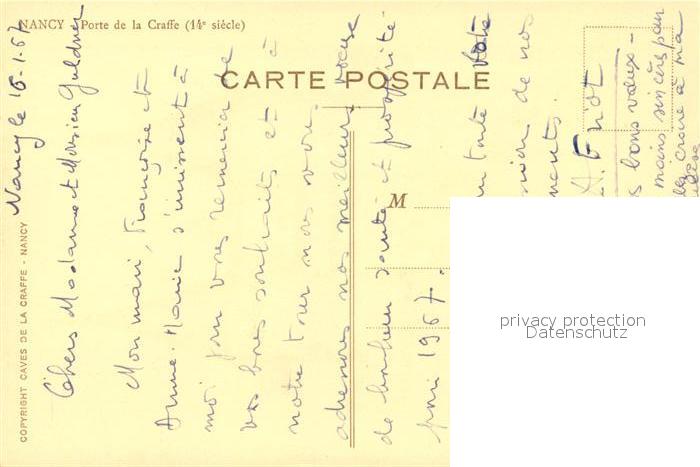 NANCY - Porte de la Craffe (14e siècle)
CARTE POSTALE
M
COPYRIGHT CAVES DE LA CRAFFE - NANCY
Nancy le 16-1-67
Chers Madame et Monsieur
Mon mari, Françoise et
Anne-Marie s'unissent à
moi pour vous remercier de
vos bons souhaits et à
notre tour nous vous
adressons nos meilleurs voeux
de bonheur santé et prospérité
pour 1967.
toute
de nos
bons voeux -
mains sincères pour
à ma
privacy protection
Datenschutz